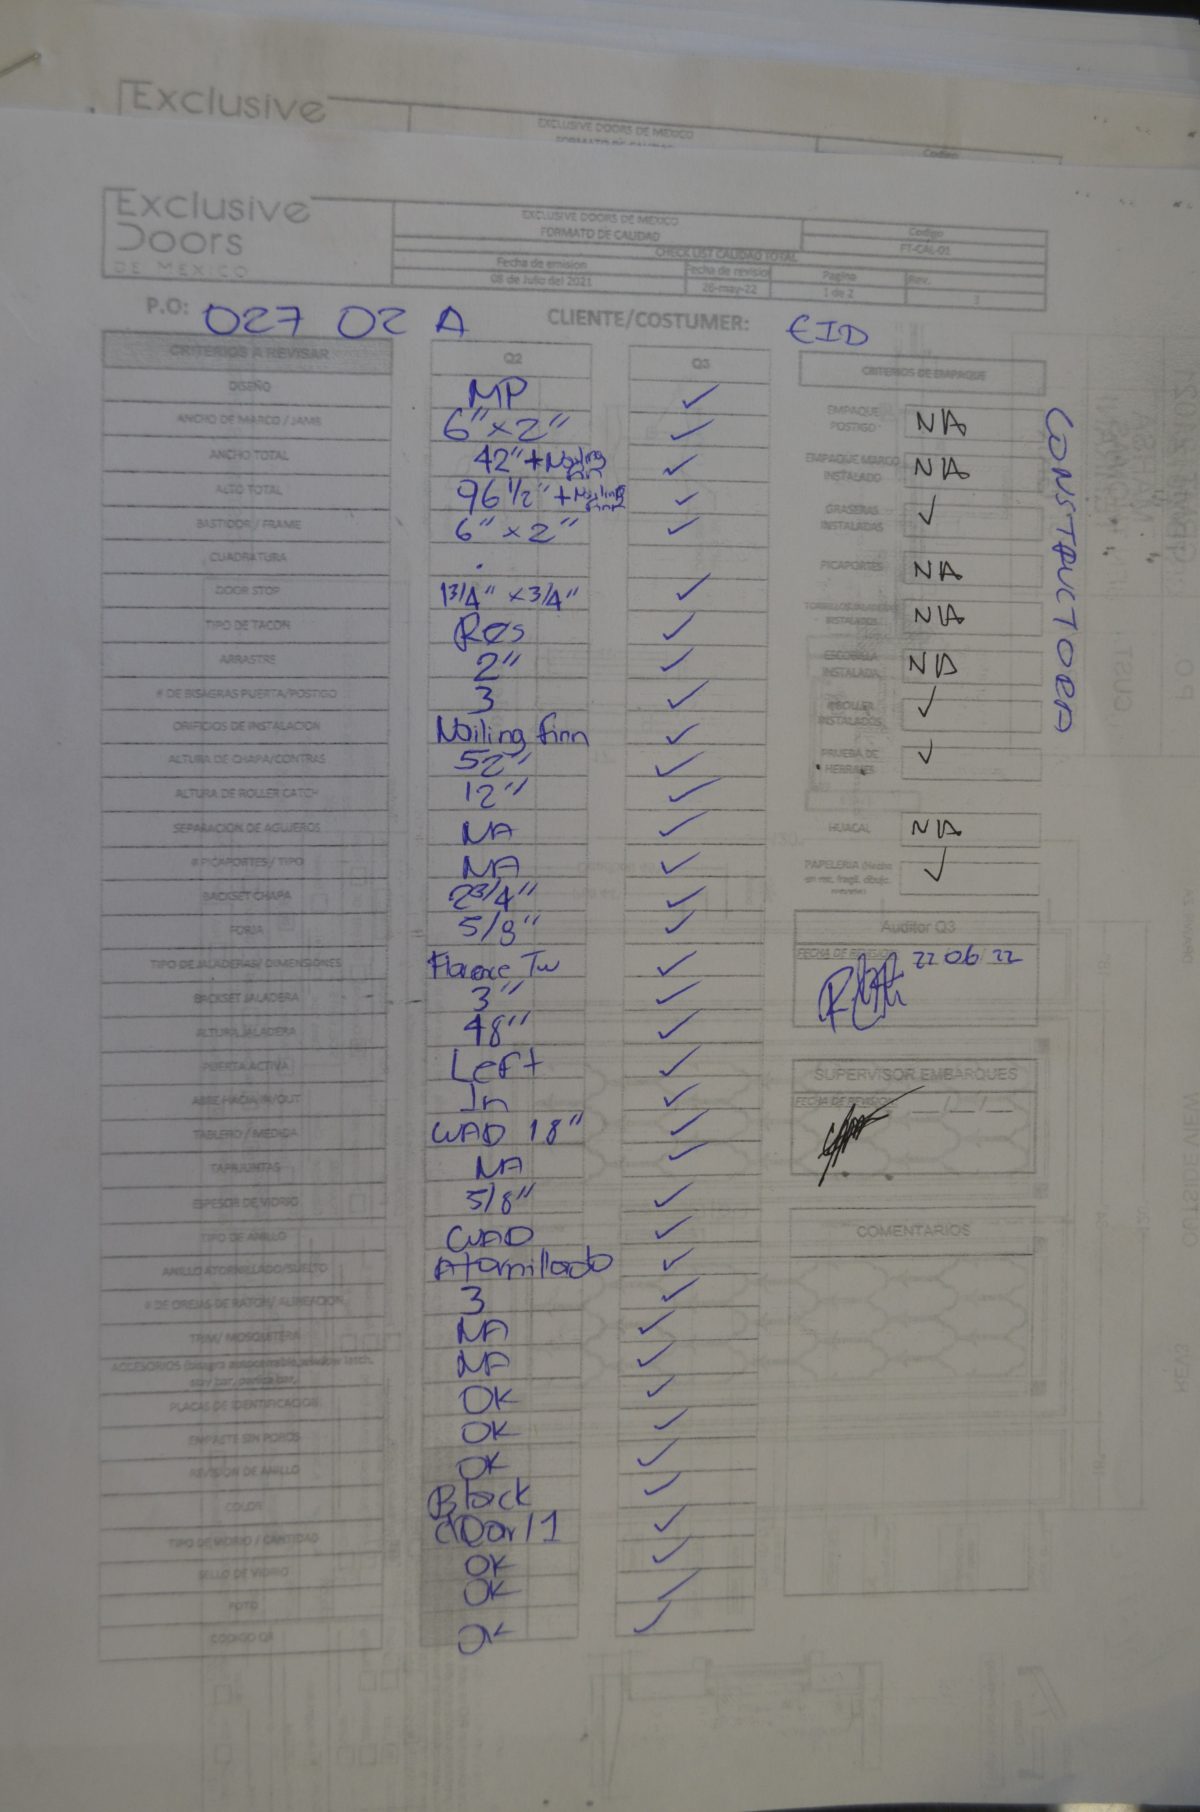 Exclusive
EXCLUSIVE DOORS DE MEXICO
FORMATO DE CALIDAD
Codigo
Exclusive
Doors
DE MEXICO
EXCLUSIVE DOORS DE MEXICO
FORMATO DE CALIDAD
Codigo
CHECK LIST CALIDAD TOTAL
FT-CAL-01
Fecha de emision
Fecha de revision
Pagina
Rev.
08 de Julio del 2021
26-may-22
1 de 2
3
P.O: 027 02 A CLIENTE/COSTUMER: EID
CRITERIOS A REVISAR Q2 Q3
DISEÑO MP ✓
ANCHO DE MARCO / JAMB 6" x 2" ✓
ANCHO TOTAL 42" + Nailing finn ✓
ALTO TOTAL 96 1/2" + Nailing finn ✓
BASTIDOR / FRAME 6" x 2" ✓
CUADRATURA .
DOOR STOP 1 3/4" x 3/4" ✓
TIPO DE TACON Res ✓
ARRASTRE 2" ✓
# DE BISAGRAS PUERTA/POSTIGO 3 ✓
ORIFICIOS DE INSTALACION Nailing finn ✓
ALTURA DE CHAPA/CONTRAS 52" ✓
ALTURA DE ROLLER CATCH 12" ✓
SEPARACION DE AGUJEROS NA ✓
# PICAPORTES / TIPO NA ✓
BACKSET CHAPA 2 3/4" ✓
FORJA 5/8" ✓
TIPO DE JALADERAS/ DIMENSIONES Florence Tw ✓
BACKSET JALADERA 3" ✓
ALTURA JALADERA 48" ✓
PUERTA ACTIVA Left ✓
ABRE HACIA IN/OUT In ✓
TABLERO / MEDIDA CUAD 18" ✓
TAPAJUNTAS NA ✓
ESPESOR DE VIDRIO 5/8" ✓
TIPO DE ANILLO CUAD ✓
ANILLO ATORNILLADO/SUELTO Atornillado ✓
# DE OREJAS DE RATON/ ALINEACION 3 ✓
TRIM/ MOSQUITERA NA ✓
ACCESORIOS NA ✓
PLACAS DE IDENTIFICACION OK ✓
EMPASTE SIN POROS OK ✓
REVISION DE ANILLO OK ✓
COLOR Black ✓
TIPO DE VIDRIO / CANTIDAD /1 ✓
SELLO DE VIDRIO OK ✓
FOTO OK ✓
CODIGO QR OK ✓
CRITERIOS DE EMPAQUE
EMPAQUE POSTIGO NA
EMPAQUE MARCO INSTALADO NA
GRASERAS INSTALADAS ✓
PICAPORTES NA
TORNILLOS JALADERAS INSTALADOS NA
ESCOBILLA INSTALADA NA
ROLLER INSTALADOS ✓
PRUEBA DE HERRAJES ✓
HUACAL NA
PAPELERIA ✓
CONSTRUCTORA
Auditor Q3
FECHA DE REVISION 22/06/22
SUPERVISOR EMBARQUES
FECHA DE REVISION __/__/__
COMENTARIOS